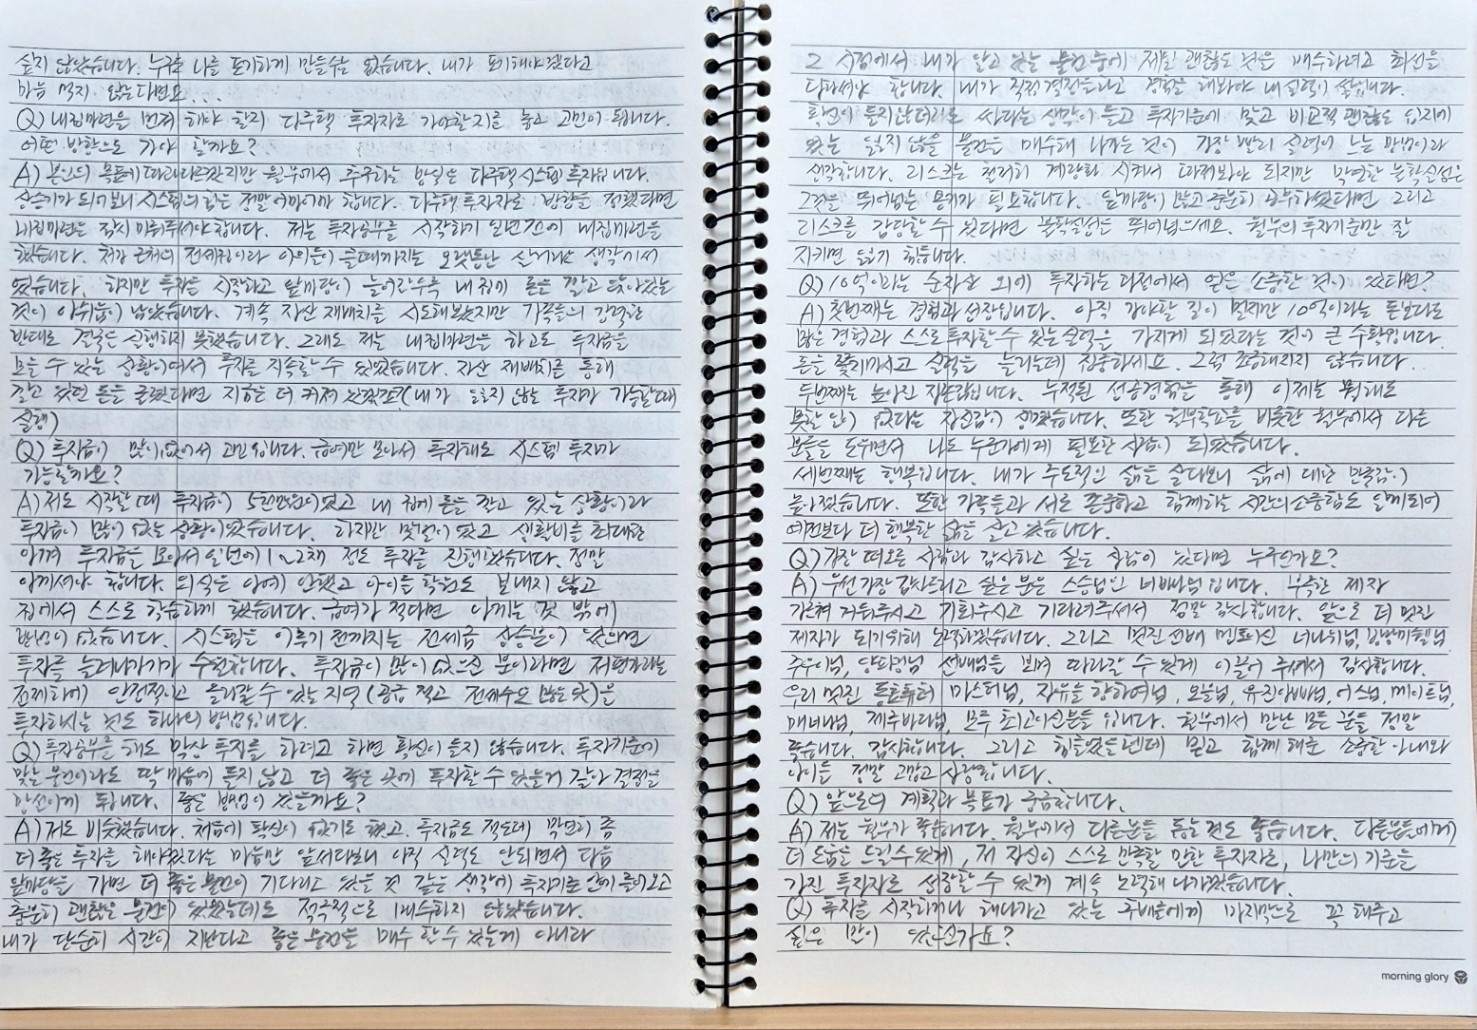 싶지 않았습니다. 누구도 나를 포기하게 만들수는 없습니다. 내가 포기해야겠다고
마음 먹지 않는다면요...
Q) 내집마련을 먼저 해야 할지 다주택 투자자로 가야할지를 놓고 고민이 됩니다.
어떤 방향으로 가야 할까요?
A) 본인의 목표에 따라 다르겠지만 월부에서 추구하는 방식은 다주택 시스템 투자입니다.
상승기가 되어보니 시스템의 힘은 정말 어마어마 합니다. 다주택 투자자로 방향을 정했다면
내집마련은 잠시 미뤄두셔야 합니다. 저는 투자공부를 시작하기 일년전에 내집마련을
했습니다. 처가 근처의 전세집이라 아이들이 클때까지는 오랫동안 살거라 생각해서
였습니다. 하지만 투자를 시작하고 앞마당이 늘어갈수록 내 집에 돈을 깔고 앉아있는
것이 아쉬움이 남았습니다. 계속 자산 재배치를 시도해보았지만 가족들의 강력한
반대로 결국은 실행하지 못했습니다. 그래도 저는 내집마련을 하고도 투자금을
모을 수 있는 상황이어서 투자를 지속할 수 있었습니다. 자산 재배치를 통해
깔고 있던 돈을 굴렸다면 지금은 더 커져 있겠죠? (내가 잃지 않는 투자가 가능할때
실행)
Q) 투자금이 많이 없어서 고민입니다. 급여만 모아서 투자해도 시스템 투자가
가능할까요?
A) 저도 시작할 때 투자금이 5천만원이었고 내 집에 돈을 깔고 있는 상황이라
투자금이 많이 없는 상황이었습니다. 하지만 맞벌이 였고 생활비를 최대한
아껴 투자금을 모아서 일년에 1~2채 정도 투자를 진행했습니다. 정말
아끼셔야 합니다. 외식은 아예 안했고 아이들 학원도 보내지 않고
집에서 스스로 학습하게 했습니다. 급여가 적다면 아끼는 것 밖에
방법이 없습니다. 시스템을 이루기 전까지는 전세금 상승분이 있으면
투자를 늘려나가기가 수월합니다. 투자금이 많이 없으신 분이라면 저평가라는
전제하에 안전적이고 올려갈 수 있는 지역(공급 적고 전세수요 많은 곳)을
투자하시는 것도 하나의 방법입니다.
Q) 투자공부를 해도 막상 투자를 하려고 하면 확신이 들지 않습니다. 투자기준에
맞는 물건이라도 딱 마음에 들지 않고 더 좋은 곳에 투자할 수 있을거 같아 결정을
망설이게 됩니다. 좋은 방법이 있을까요?
A) 저도 비슷했습니다. 처음에 확신이 없기도 했고. 투자금도 적은데 막연히 좀
더 좋은 투자를 해야겠다는 마음만 앞서다보니 아직 실력도 안되면서 다음
앞마당을 가면 더 좋은 물건이 기다리고 있을 것 같은 생각에 투자기준 안에 들어오고
충분히 괜찮은 물건이 있었는데도 적극적으로 매수하지 않았습니다.
내가 단순히 시간이 지난다고 좋은 물건을 매수 할 수 있는게 아니라
그 시점에서 내가 알고 있는 물건 중에 제일 괜찮은 것은 매수하려고 최선을
다하셔야 합니다. 내가 직접 결정을 하고 경험을 해봐야 내 실력이 쌓입니다.
확신이 들지않더라도 싸다는 생각이 들고 투자기준에 맞고 비교적 괜찮은 입지에
있는 잃지 않을 물건을 매수해 나가는 것이 가장 빨리 실력이 느는 방법이라
생각합니다. 리스크는 철저히 계량화 시켜서 따져봐야 되지만 막연한 불확실성은
그것을 뛰어넘는 용기가 필요합니다. 앞마당이 많고 충분히 공부하였다면 그리고
리스크를 감당할 수 있다면 불확실성은 뛰어넘으세요. 월부의 투자기준만 잘
지키면 잃기 힘듭니다.
Q) 10억이라는 순자산 외에 투자하는 과정에서 얻은 소중한 것이 있다면?
A) 첫번째는 경험과 성장입니다. 아직 가야할 길이 멀지만 10억이라는 돈보다도
많은 경험과 스스로 투자할 수 있는 실력을 가지게 되었다는 것이 큰 수확입니다.
돈을 쫓지마시고 실력을 늘리는데 집중하세요. 그럼 조급해지지 않습니다.
두번째는 높아진 자존감입니다. 누적된 성공경험을 통해 이제는 뭘해도
못할 일이 없다는 자신감이 생겼습니다. 또한 월부학교를 비롯한 월부에서 다른
분들을 도우면서 나도 누군가에게 필요한 사람이 되었습니다.
세번째는 행복입니다. 내가 주도적인 삶을 살다보니 삶에 대한 만족감이
높아졌습니다. 또한 가족들과 서로 존중하고 함께하는 시간의 소중함도 알게되어
예전보다 더 행복한 삶을 살고 있습니다.
Q) 가장 떠오르는 사람과 감사하고 싶은 사람이 있다면 누구인가요?
A) 우선 가장 감사드리고 싶은 분은 스승님인 너바나님 입니다. 부족한 제자
가르쳐 거둬주시고 기회주시고 기다려주셔서 정말 감사합니다. 앞으로 더 멋진
제자가 되기위해 노력하겠습니다. 그리고 멋진 선배 멘토이신 너나위님,
주우이님, 양파링님 선배님들 보며 따라갈 수 있게 이끌어 주셔서 감사합니다.
우리 멋진 동료튜터 마스터님, 자유를 향하여님, 유진아빠님, 메이트님,
제주바다님, 모두 최고이신분들 입니다. 월부에서 만난 모든 분들 정말
좋습니다. 감사합니다. 그리고 힘들었을텐데 믿고 함께 해준 소중한 아내와
아이들 정말 고맙고 사랑합니다.
Q) 앞으로의 계획과 목표가 궁금합니다.
A) 저는 월부가 좋습니다. 월부에서 다른분들 돕는 것도 좋습니다. 다른분들에게
더 도움을 드릴수 있게, 저 자신이 스스로 만족할 만한 투자자로, 나만의 기준을
가진 투자자로 성장할 수 있게 계속 노력해 나가겠습니다.
Q) 투자를 시작하거나 해나가고 있는 후배들에게 마지막으로 꼭 해주고
싶은 말이 있으신가요?
morning glory